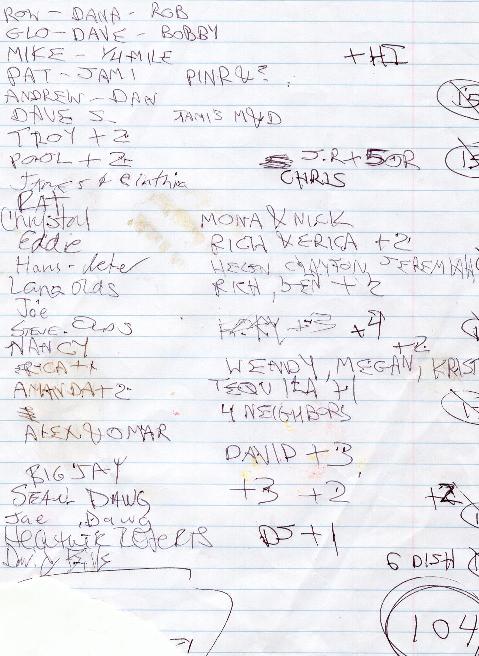 RON - DANA - ROB
GLO - DAVE - BOBBY
MIKE - 1/4 MILE
PAT - JAMI
ANDREW - DAN
DAVE S. JAMI'S M&D
TROY + 2
POOL + 2 J.R + 5 OR
James & Cinthia CHRIS
RAT
Chrystal MONA & NICK
Eddie RICH & ERICA + 2
Hans-Peter HELEN CLAYTON JEREMIAH
Lang olds RICH, JEN + 2
Joe
STEVE +4
NANCY +2
RICA + WENDY, MEGAN, KRIST
AMANDA + 2 TEQUILA +1
4 NEIGHBORS
ALEX & OMAR
DAVID + 3
BIG JAY
SEAN DAWG +3 +2 +2
Jae Dawg
HEATHER PETERS DJ + 1
104